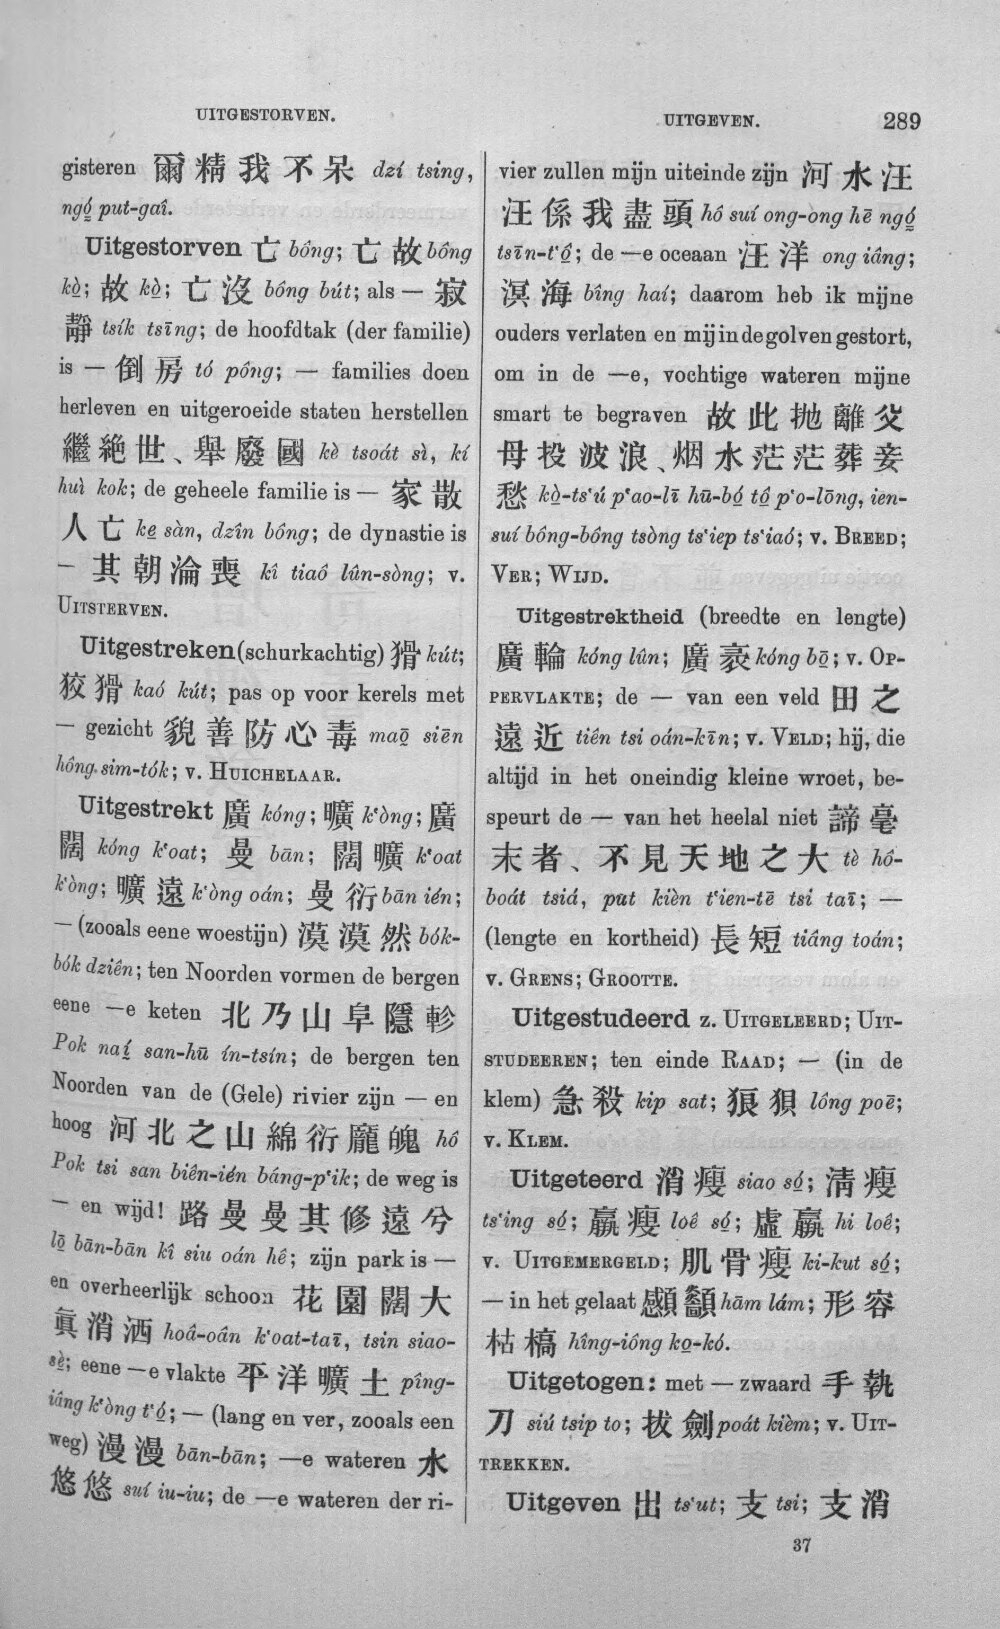 UITGESTORVEN.
UITGEVEN.
289
gisteren 爾精我不呆 dzí tsing,
ngó̤ put-gaî.
Uitgestorven 亡 bông; 亡故 bông
kò̤; 故 kò̤; 亡沒 bông bút; als — 寂
靜 tsík tsīng; de hoofdtak (der familie)
is — 倒房 tó pông; — families doen
herleven en uitgeroeide staten herstellen
繼絶世、舉廢國 kè tsoát sì, kí
huì kok; de geheele familie is — 家散
人亡 ke̤ sàn, dzîn bông; de dynastie is
— 其朝淪喪 kî tiaô lûn-sòng; v.
UITSTERVEN.
Uitgestreken (schurkachtig) 猾 kút;
狡猾 kaó kút; pas op voor kerels met
— gezicht 貌善防心毒 maō̤ siēn
hông-sim-tók; v. HUICHELAAR.
Uitgestrekt 廣 kóng; 曠 k‘òng; 廣
闊 kóng k‘oat; 曼 bān; 闊曠 k‘oat
k‘òng; 曠遠 k‘òng oán; 曼衍 bān ién;
— (zooals eene woestijn) 漠漠然 bók-
bók dziên; ten Noorden vormen de bergen
eene —e keten 北乃山阜隱軫
Pok naí̤ san-hū ín-tsín; de bergen ten
Noorden van de (Gele) rivier zijn — en
hoog 河北之山綿衍龐魄 hô
Pok tsi san biên-ién báng-p‘ik; de weg is
— en wijd! 路曼曼其修遠兮
lō̤ bān-bān kî siu oán hê; zijn park is —
en overheerlijk schoon 花園闊大
眞消洒 hoâ-oân k‘oat-taī, tsin siao-
sè̤; eene —e vlakte 平洋曠土 pîng-
iâng k‘òng t‘ó̤; — (lang en ver, zooals een
weg) 漫漫 bān-bān; —e wateren 水
悠悠 suí iu-iu; de —e wateren der ri-
vier zullen mijn uiteinde zijn 河水汪
汪係我盡頭 hô suí ong-òng hē ngó̤
tsīn-t‘ô̤; de —e oceaan 汪洋 ong iâng;
溟海 bîng haí; daarom heb ik mijne
ouders verlaten en mij in de golven gestort,
om in de —e, vochtige wateren mijne
smart te begraven 故此抛離父
母投波浪、烟水茫茫葬妾
愁 kò̤-ts‘ú p‘ao-lī hū-bó̤ tô̤ p‘o-lōng, ien-
suí bông-bông tsòng ts‘iep ts‘iaó; v. BREED;
VER; WIJD.
Uitgestrektheid (breedte en lengte)
廣輪 kóng lûn; 廣袤 kóng bō̤; v. OP-
PERVLAKTE; de — van een veld 田之
遠近 tiên tsi oán-kīn; v. VELD; hij, die
altijd in het oneindig kleine wroet, be-
speurt de — van het heelal niet 諦毫
末者、不見天地之大 tè hô-
boát tsiá, put kièn t‘ien-tē tsi taī; —
(lengte en kortheid) 長短 tiâng toán;
v. GRENS; GROOTTE.
Uitgestudeerd z. UITGELEERD; UIT-
STUDEEREN; ten einde RAAD; — (in de
klem) 急殺 kip sat; 狼狽 lông poē;
v. KLEM.
Uitgeteerd 消瘦 siao só̤; 清瘦
ts‘ing só̤; 羸瘦 loê só̤; 虛羸 hi loê;
v. UITGEMERGELD; 肌骨瘦 ki-kut só̤;
— in het gelaat 顑顲 hām lám; 形容
枯槁 hîng-iông ko̤-kó.
Uitgetogen: met — zwaard 手執
刀 siú tsip to; 拔劍 poát kièm; v. UIT-
TREKKEN.
Uitgeven 出 ts‘ut; 支 tsi; 支消
37